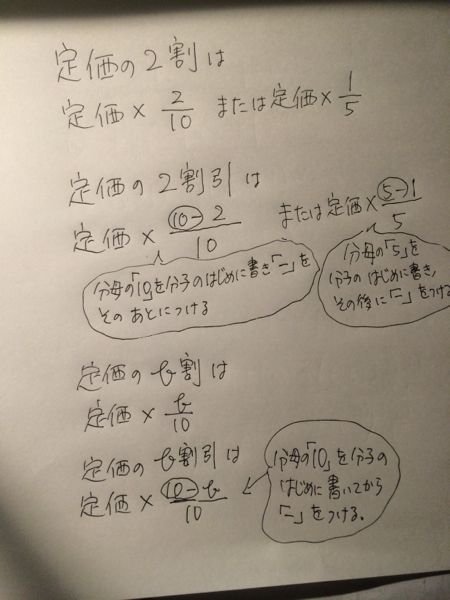 定価の2割は
定価× 2/10 または定価× 1/5
定価の2割引は
定価× 10-2/10 または定価× 5-1/5
分母の「10」を分子のはじめに書き「-」を
そのあとにつける
分母の「5」を
分子のはじめに書き,
その後に「-」をつける
定価のb割は
定価× b/10
定価のb割引は
定価× 10-b/10
分母の「10」を分子の
はじめに書いてから
「-」をつける.